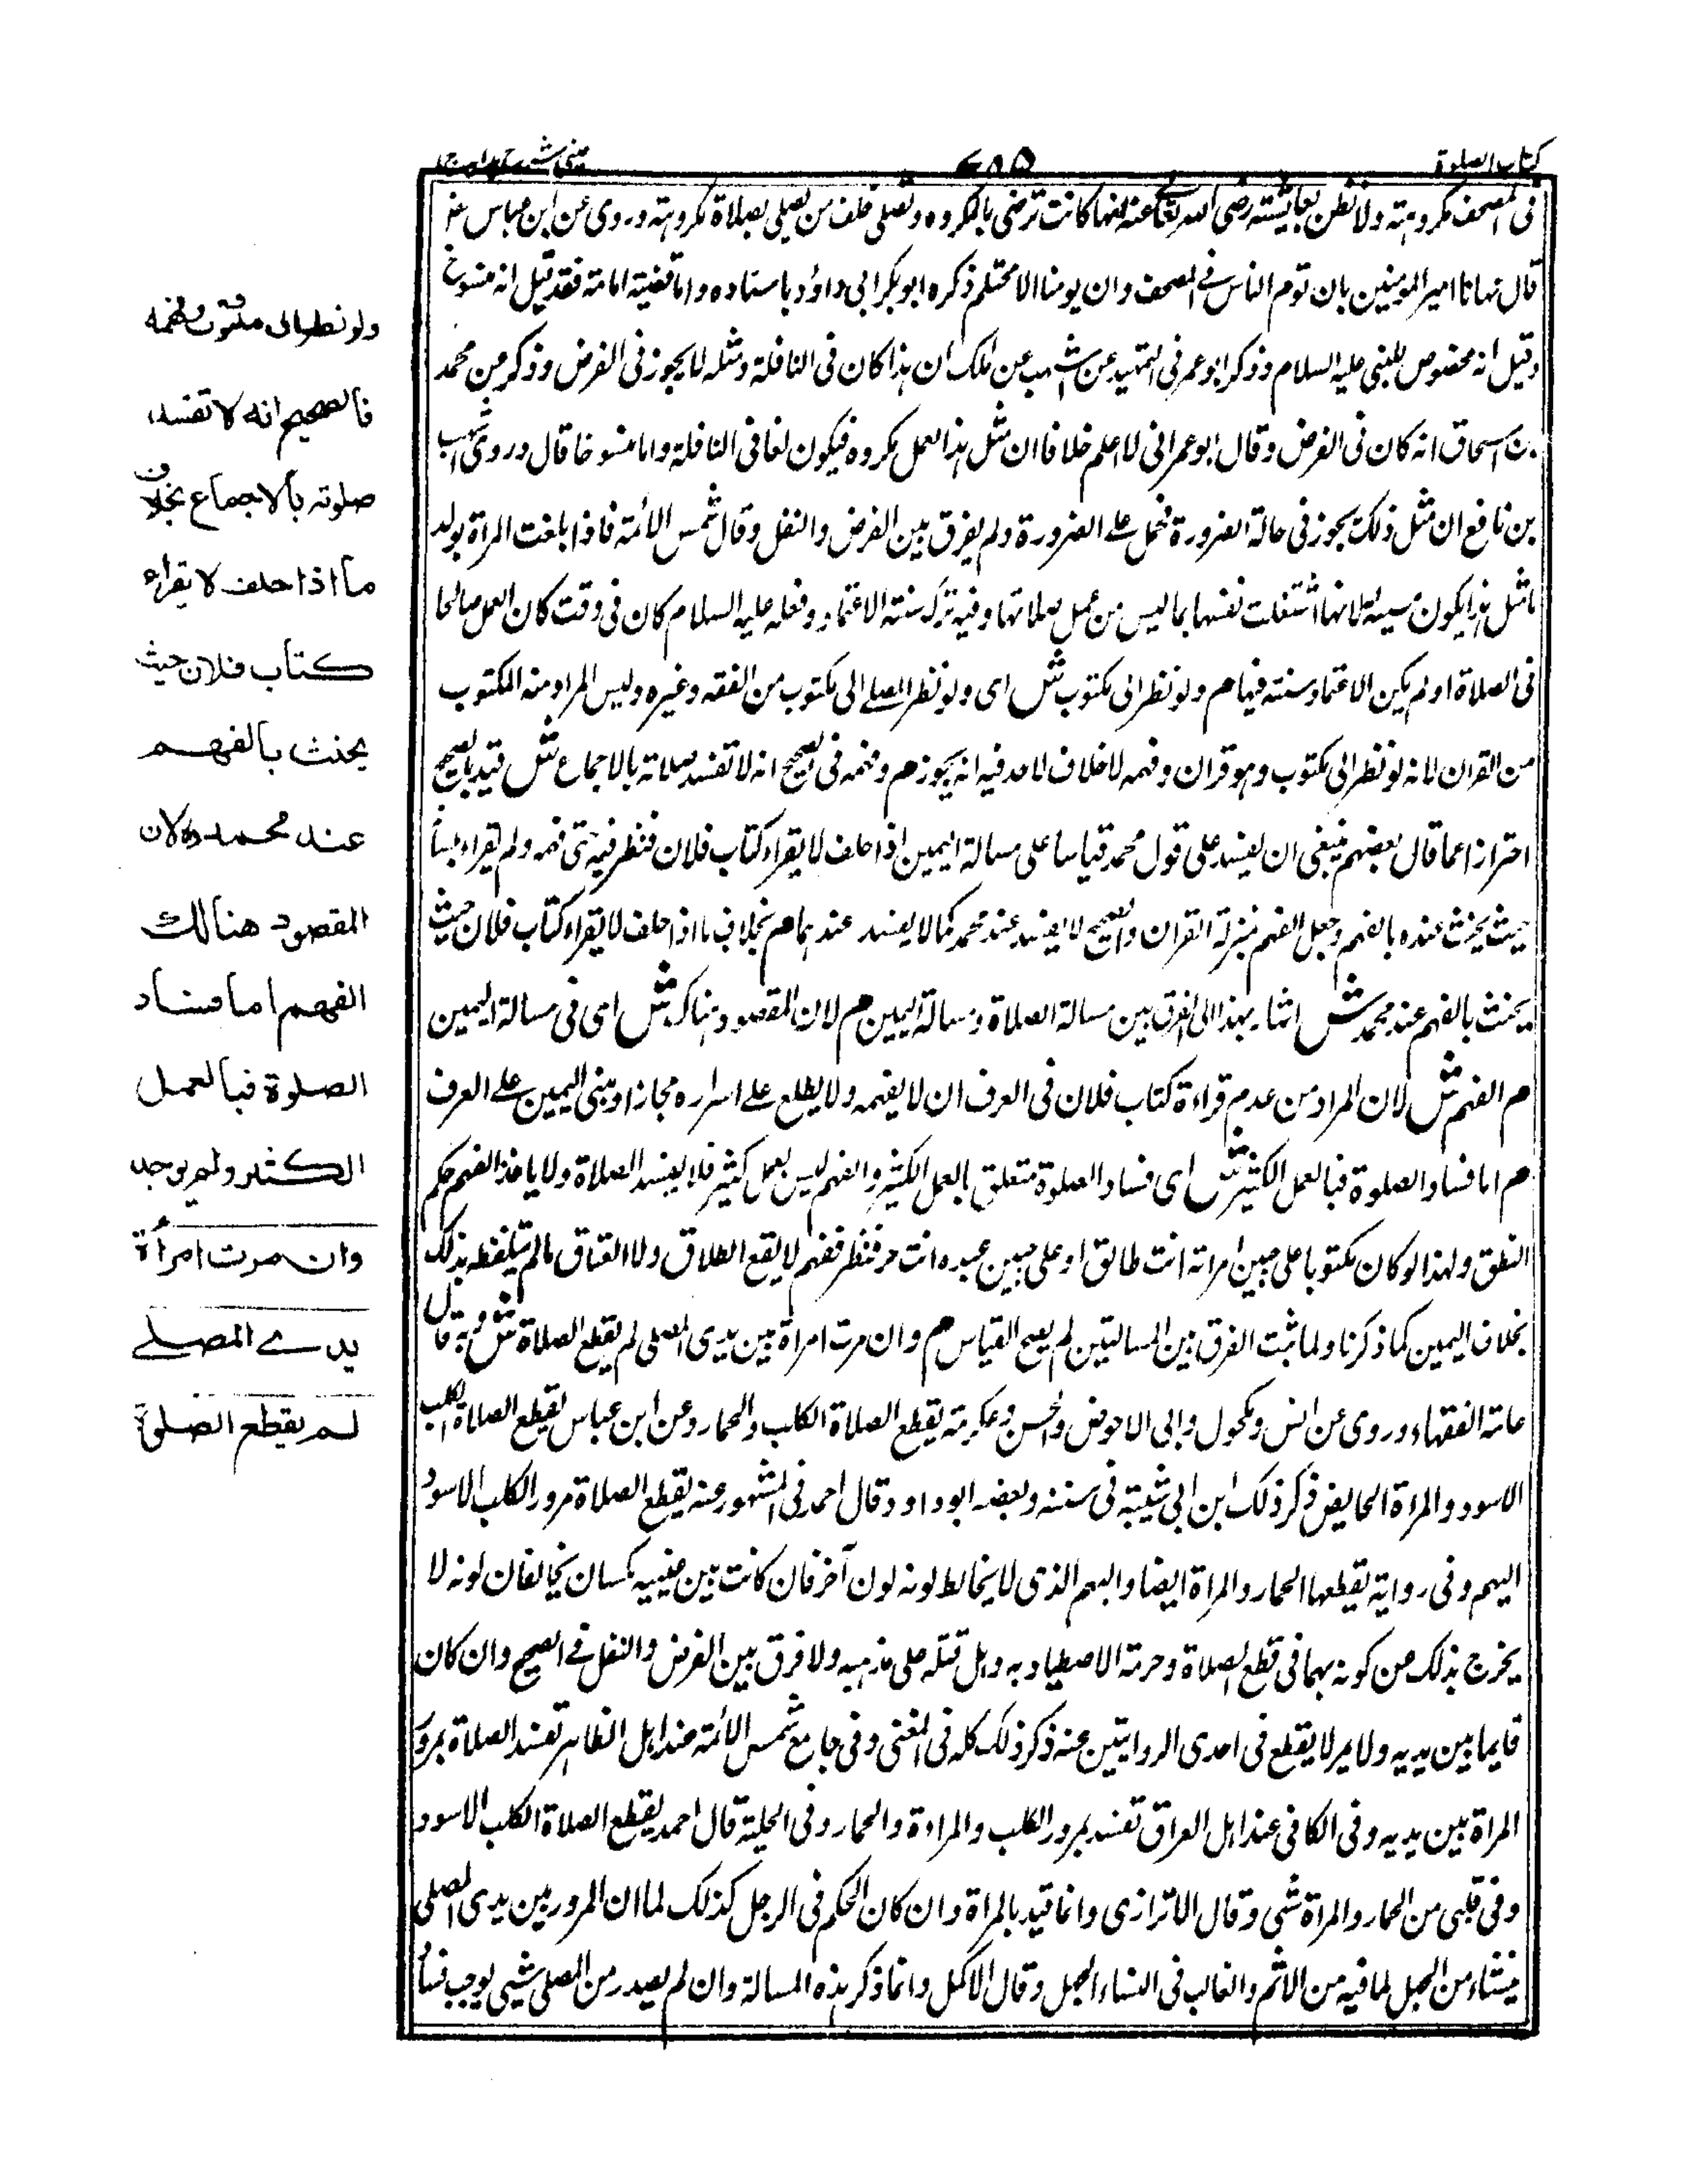 كتاب الصلوة
٧٨٥
عينى شرح هدايه ج ١
فى المصحف مكروهته ولا نظن بعائشته رضى الله تعالى عنها انها كانت ترضى بالمكروه وتصلى خلف من يصلى بصلاة مكروهته وروى عن ابن عباس
قال نهانا امير المومنين بان نوم الناس فى المصحف وان يومنا الا محتلم ذكره ابو بكر ابى داؤد باسناده واما قضيته امامة فقد قيل انه منسوخ
وقيل انه مخصوص للنبى عليه السلام وذكر ابو عمر فى التمهيد عن اشهب عن مالك ان هذا كان فى النافلة ومثله لا يجوز فى الفرض وذكر من محمد
بن اسحاق انه كان فى الفرض وقال ابو عمر انى لا اعلم خلافا ان مثل هذا العمل مكروه فيكون لغا فى النافلة واما منسوخا قال وروى اشهب
بن نافع ان مثل ذلك يجوز فى حالة الضرورة فحمل على الضرورة ولم يفرق بين الفرض والنفل وقال شمس الأئمة فاذا بلغت المراة بولد
ما مثل هذا يكون مسيئه لانها اشتغلت نفسها بما ليس من عمل صلاتها وفيه ترك سنته الاعتماد وفعله عليه السلام كان فى وقت كان العمل صالحا
فى الصلاة او لم يكن الاعتماد سنته فيها م ولو نظر الى مكتوب ش اى ولو نظر المصلى الى مكتوب من الفقه وغيره وليس المراد منه المكتوب
من القران لانه لو نظر الى مكتوب وهو قران وفهمه لا خلاف لاحد فيه انه يجوز م وفهمه فى الصحيح انه لا تفسد صلاته بالاجماع ش قيد بالصحيح
احترازا عما قال بعضهم ينبغى ان يفسد على قول محمد قياسا على مسالة اليمين اذا حلف لا يقراء كتاب فلان فنظر فيه حتى فهمه ولم يقراء بلسانه
حيث يحنث عنده بالفهم وجعل الفهم بمنزلة القران والصحيح لا يفسد عند محمد كما لا يفسد عندهما م بخلاف ما اذا حلف لا يقراء كتاب فلان حيث
يحنث بالفهم عند محمد ش اشار بهذا الى الفرق بين مسالة الصلاة ومسالة اليمين م لان المقصود هناك ش اى فى مسالة اليمين
م الفهم ش لان المراد من عدم قراءة كتاب فلان فى العرف ان لا يفهمه ولا يطلع على اسراره مجازا ومبنى اليمين على العرف
م اما فساد الصلوة فبالعمل الكثير ش اى فساد الصلوة متعلق بالعمل الكثير والفهم ليس بعمل كثير فلا يفسد الصلاة ولا ياخذ الفهم حكم
النطق ولهذا لو كان مكتوبا على جبين امراته انت طالق او على جبين عبده انت حر فنظر ففهم لا يقع الطلاق ولا العتاق مالم يتلفظ بذلك
بخلاف اليمين كما ذكرنا ولما ثبت الفرق بين المسالتين لم يصح القياس م وان مرت امراة بين يدى المصلى لم يقطع الصلاة ش وبه قال
عامة الفقهاء وروى عن انس ومكحول وابى الاحوص والحسن وعكرمة يقطع الصلاة الكلب والحمار وعن ابن عباس يقطع الصلاة الكلب
الاسود والمراة الحايض ذكر ذلك ابن ابى شيبة فى سننه وبعضه ابو داود وقال احمد فى المشهور عنه يقطع الصلاة مرور الكلب الاسود
البهيم وفى رواية يقطعها الحمار والمراة ايضا والبهيم الذى لا يخالط لونه لون آخر فان كانت بين عينيه نكتتان يخالفان لونه لا
يخرج بذلك من كونه بهيما فى قطع الصلاة وحرمة الاصطياد به وحل قتله على مذهبه ولا فرق بين الفرض والنفل فى الصحيح وان كان
قايما بين يديه ولا يمر لا يقطع فى احدى الروايتين عنه ذكر ذلك كله فى المغنى وفى جامع شمس الأئمة عند اهل الظاهر تفسد الصلاة بمرور
المراة بين يديه وفى الكافى عند اهل العراق تفسد بمرور الكلب والمراءة والحمار وفى الحلية قال احمد يقطع الصلاة الكلب الاسود
وفى قلبى من الحمار والمراة شى وقال الاترازى وانما قيد بالمراة وان كان الحكم فى الرجل كذلك لما ان المرور بين يدى المصلى
ينشاء من الجهل لما فيه من الاثم والغالب فى النساء الجهل وقال الاكمل وانما ذكر هذه المسالة وان لم يصدر من المصلى شيى يوجب فساد
ولو نظر الى مكتوب وفهمه
فالصحيح انه لا تفسد
صلوته بالاجماع بخلاف
ما اذا حلف لا يقراء
كتاب فلان حيث
يحنث بالفهم
عند محمد لان
المقصود هنالك
الفهم اما فساد
الصلوة فبالعمل
الكثير ولم يوجد
وان مرت امرأة
يدى المصلے
لم يقطع الصلوة